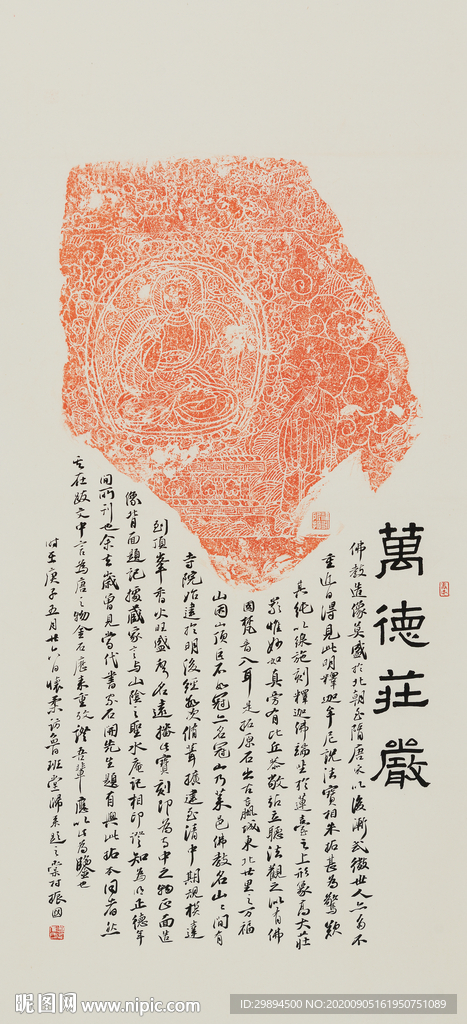 萬德莊嚴
佛教造像莫盛於北朝至隋唐宋以後漸式微世人亦多不
重近日得見此明釋迦牟尼說法寶相朱拓甚為驚歎
其純以線施刻釋迦佛端坐於蓮臺之上形象高大莊
嚴惟妙如真旁有比丘恭敬站立聽法觀之似有佛
國梵音入耳是拓原石出古
城東北廿里之万福
山因山頂巨石如冠亦名冠山乃萊邑佛教名山山間有
寺院治建於明後經數次脩葺擴建至清中期規模達
到頂峯香火旺盛聲名遠播
寶刻即為寺中之物正面造
像背面題記據藏家言与山陰之聖水庵記相印證知為明正德年
間所刊也余去歲曾見當代書家石開先生題自與此拓本同者然
言在跋文中言為唐之物金石唐
重攷證吾輩應以此為鑒也
時在庚子五月廿六日懷
訪魯班堂歸來題之
村振國
昵图网 www.nipic.com
ID:29894500 NO:20200905161950751089